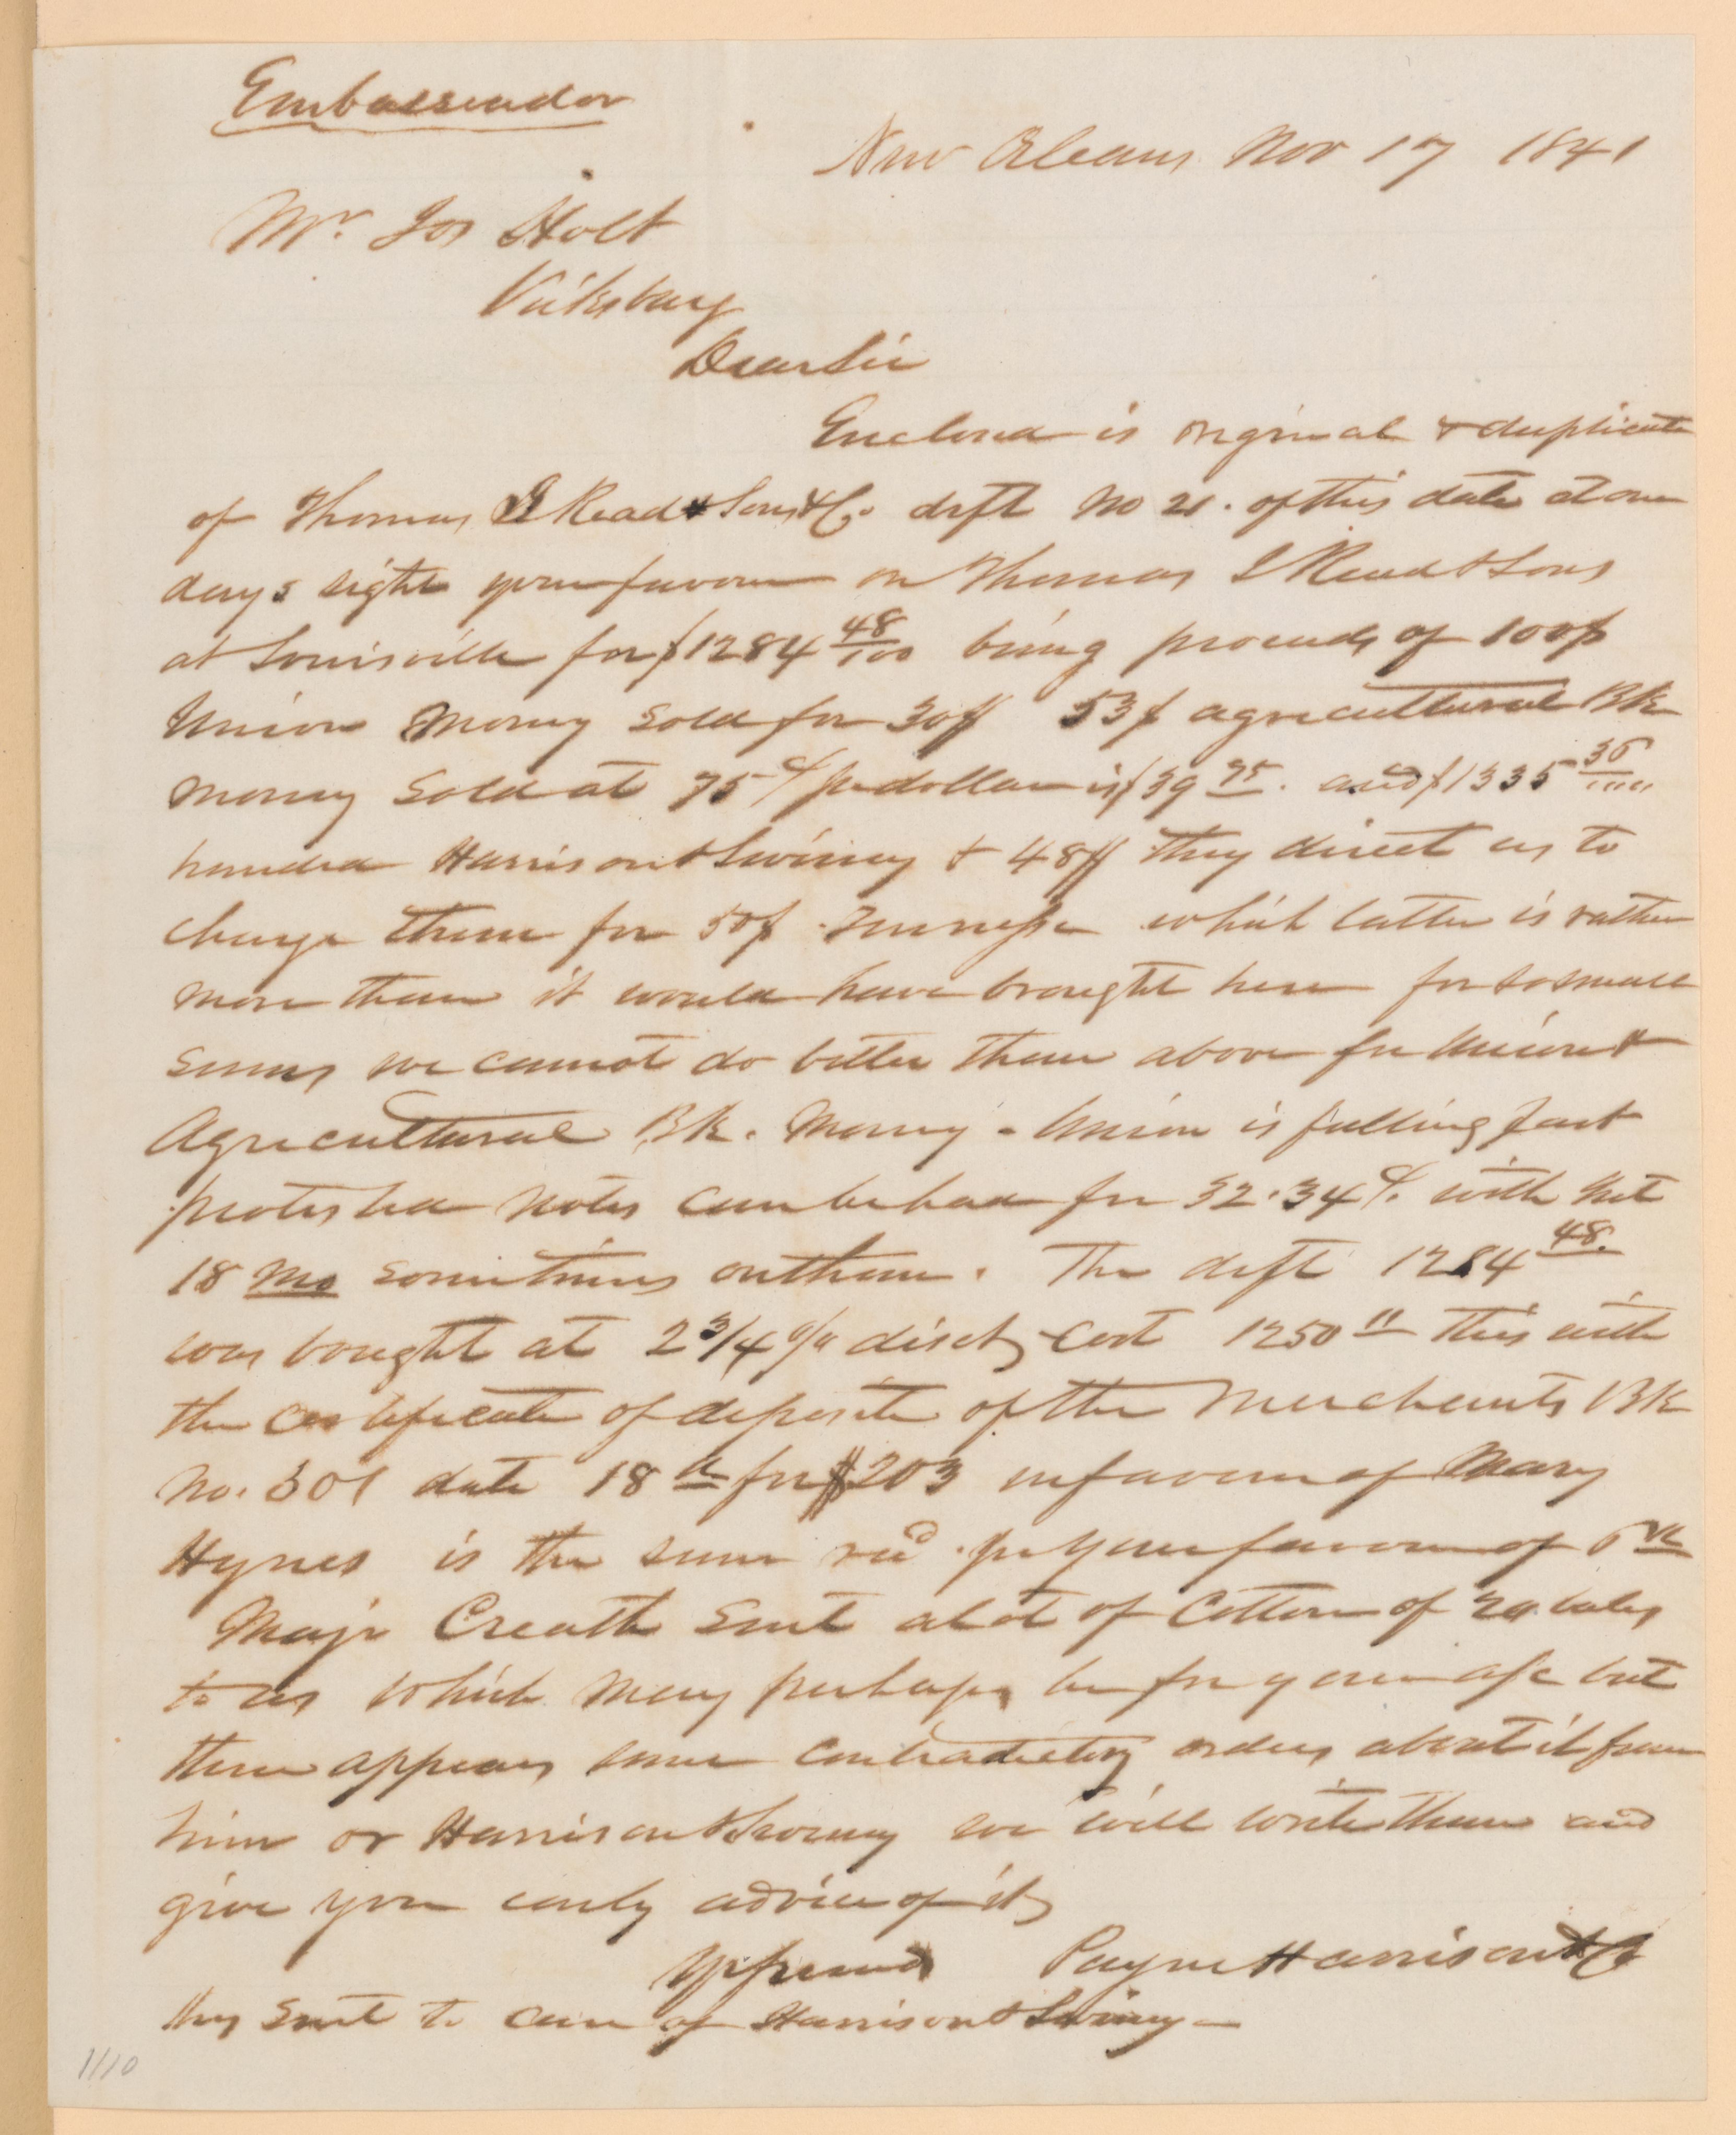 Embassador
New Orleans Nov 17 1841
Mr. Jos Holt
Vicksburg
Dear Sir
Enclosed is original & duplicate
of Thomas J Read & Sons & Co dft No 21. of this date at one
days sight your favour on Thomas J Read & Sons
at Louisville for $1284 48/100 being proceeds of 100$
Union Money sold for 30$ 53$ agricultural Bk
money sold at 75 cts per dollar is $39 75. and $1335 36
handed Harrison & Lwiney & 48$ they direct us to
charge them for 50$ Tennessee which latter is rather
more than it would have brought here for so small
sums we cannot do better than above for Union &
Agricultural Bk. Money - Union is falling fast
protested notes can be had for 32.34 cts. with Int
18 mo sometimes on them. The dft 1284 48
was bought at 2 3/4 % disct, cost 1250 " this with
the certificate of deposite of the Merchants Bk
No. 301 date 18th for $203 in favour of Mary
Hynes is the sum recd. pr your favour of 6th
Majr Creath sent a lot of Cotton of 20 bales
to us which may perhaps be for your a/c but
there appears some contradictory orders about it from
him or Harrison & Lwiney we will write them and
give you early advice of it,
Yr friends Payne Harrison & Co
they sent to care of Harrison & Lwiney -
1110